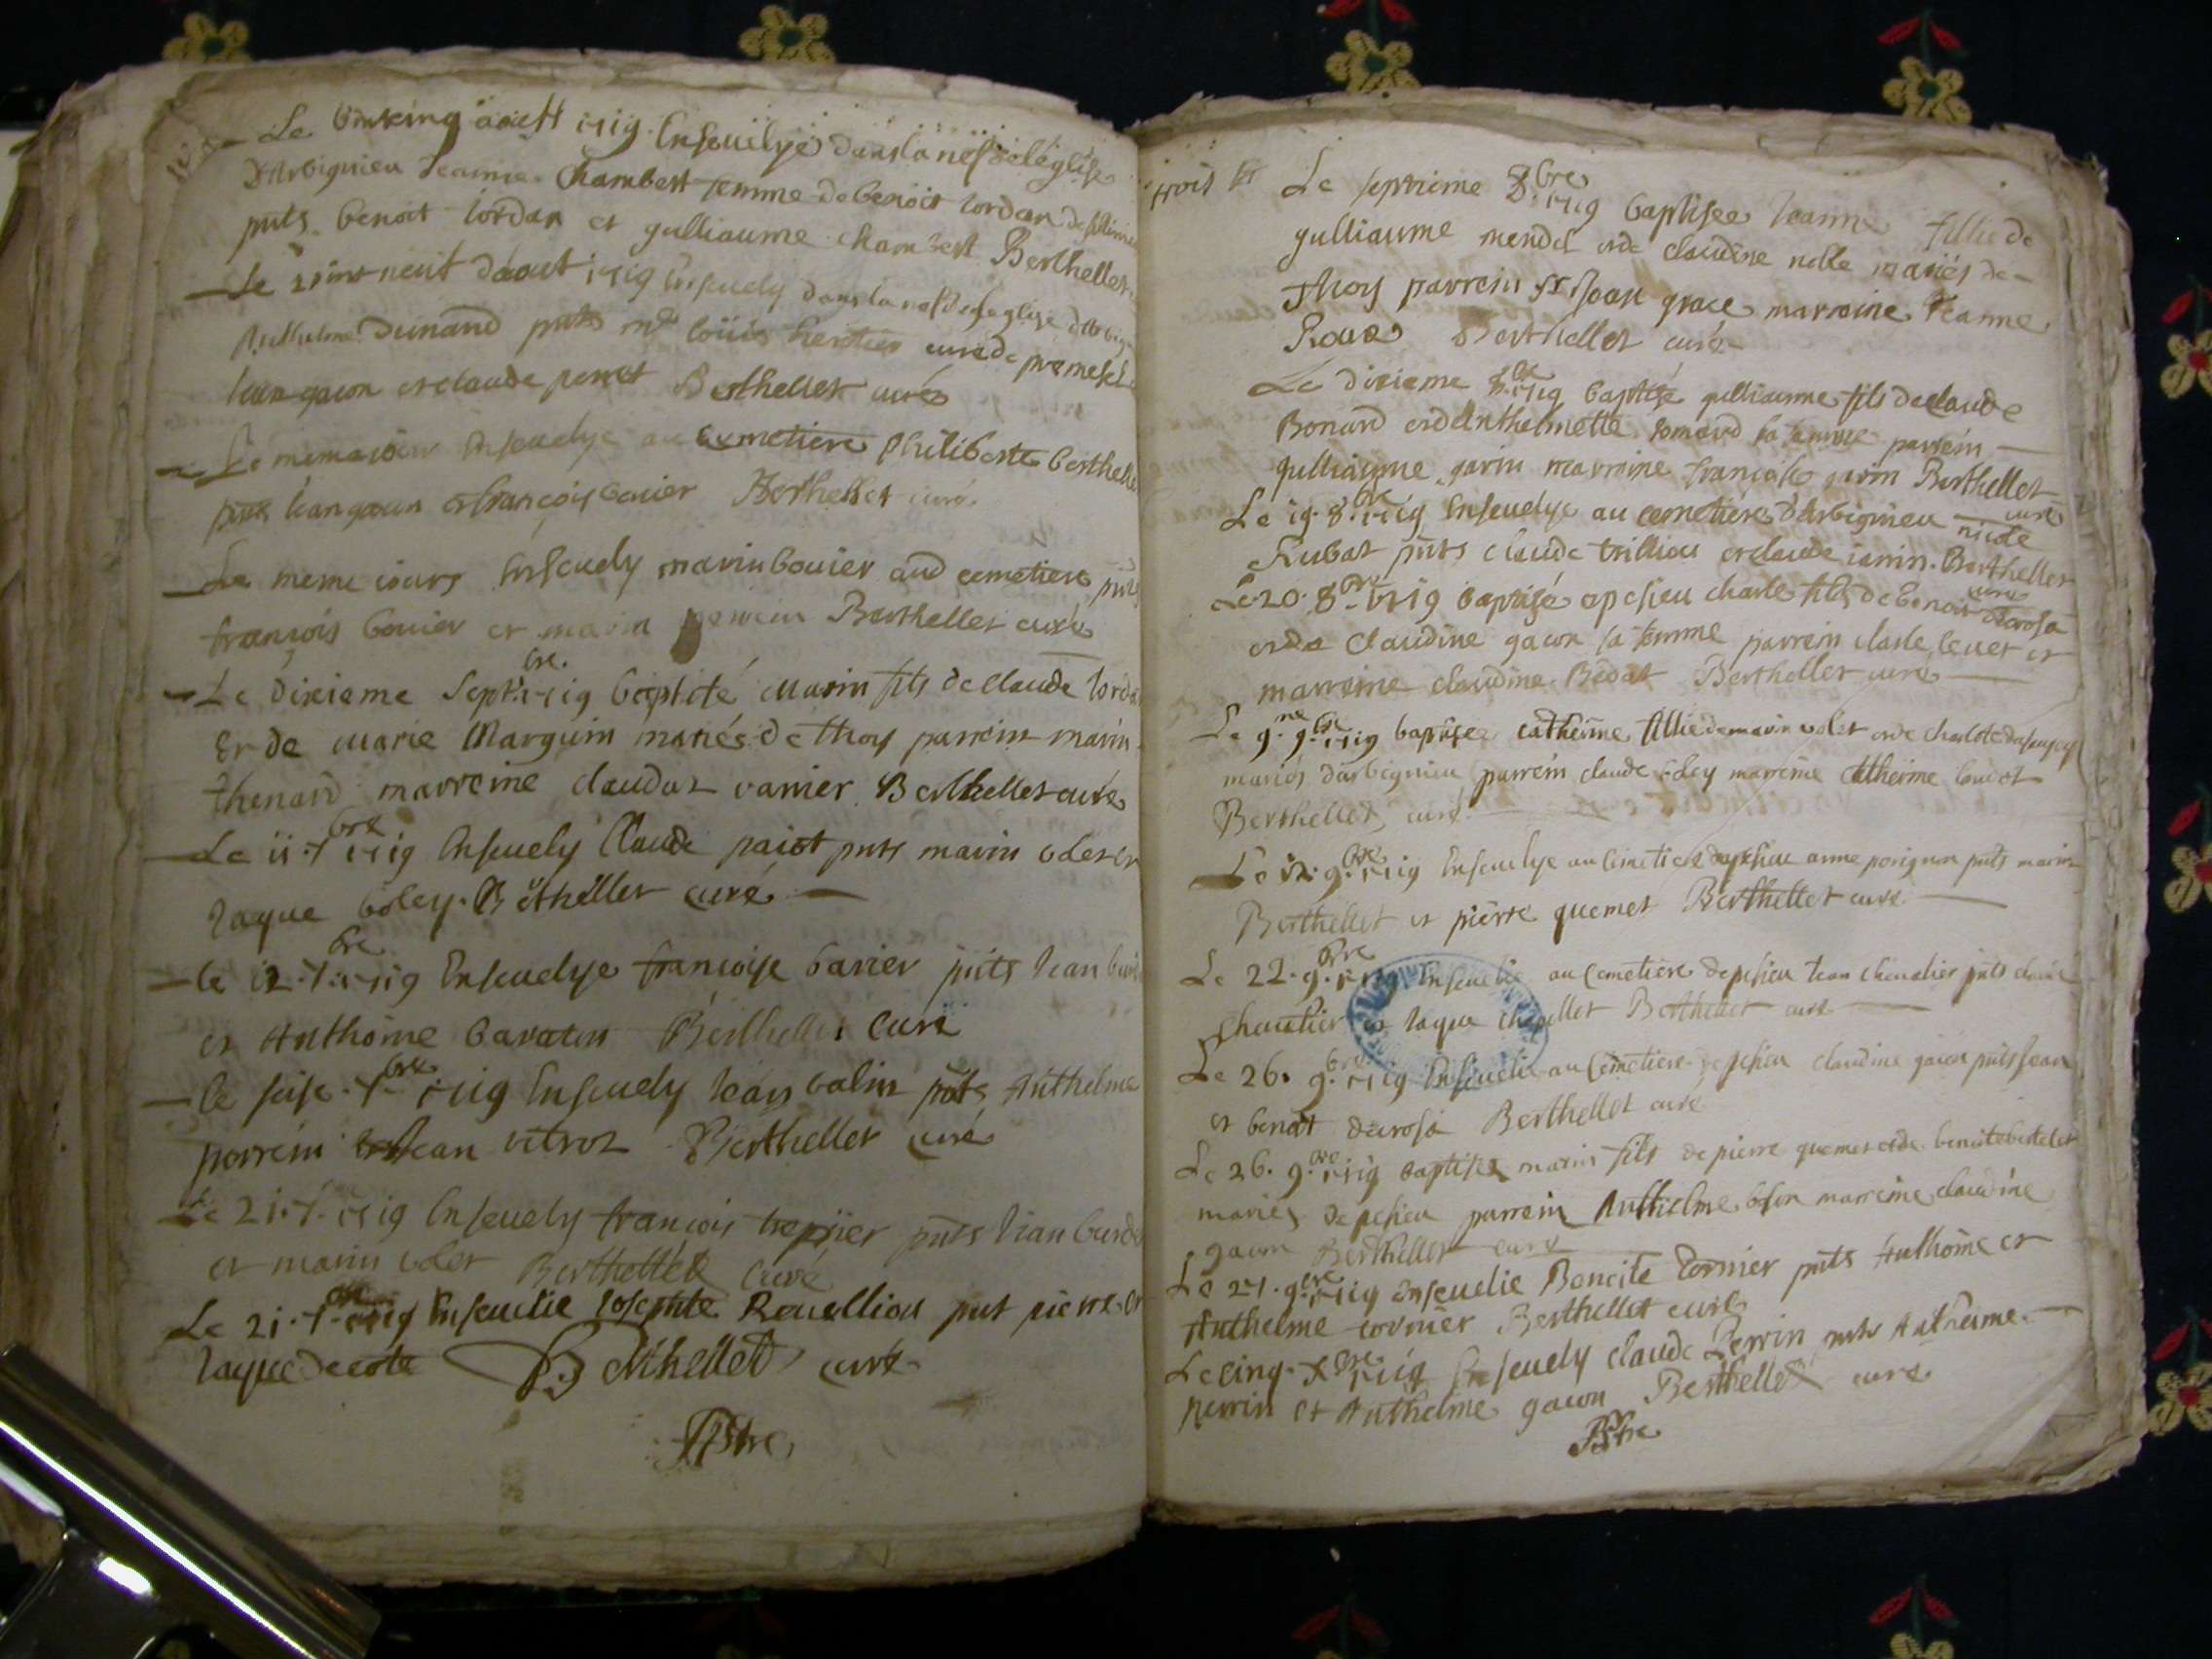 Le vintcinq aoust 1719 Ensevelye dans la nef de l'église
D'Arbignieu Jeanne Chambert femme de benoit Jordan
puts benoit Jordan et gulliaume chambert Berthellet
Le vint neuf daout 1719 Ensevely dans la nef de leglise
Anthelme Dunand puts mr loüis heritier curé de premesel
Jean gacon et claude perret Berthellet curé
Le meme jour Ensevelye au cemetiere Philiberte berthelle
puts Jean gacon et françois bovier Berthellet curé
Le meme jours Ensevely marin bovier aud cemetiere puts
françois bovier et marin Berthellet curé
Le dixieme Septbre 1719 baptisé marin fils de claude Jorda
Et de marie Marguin mariés de thoy parrein marin
thenard marreine claudaz varnier Berthellet curé
Le 11 7bre 1719 Ensevely Claude paiot puts marin colet et
Jaque boley Berthellet curé
le 12 7bre 1719 Ensevelye francoise barier puts Jean
et Anthoine Berthellet curé
le seise 7bre 1719 Ensevely Jean balin puts Anthelme
perrein et Jean vitroz Berthellet curé
Le 21 7 1719 Ensevely francois trepier puts Jean
et marin colet Berthellet curé
Le 21 7bre 1719 Ensevelie Josephte Revellion put pierre et
Jaque decote Berthellet curé
trois
Le septieme 8bre 1719 baptisee Jeanne fillie de
gulliaume mendel et de claudine nolle mariés de
thoy parrein sr Jean grace marreine Jeanne
Roux Berthellet curé
Le dixieme 8bre 1719 baptisé gulliaume fils de claude
Bonard et d'Anthelmette sa femme parrein
gulliaume garin marreine francoise garin Berthellet
curé
Le 19 8bre 1719 Ensevelye au cemetiere d'Arbignieu nicole
Rubat puts claude trilliou et claude janin Berthellet
curé
Le 20 8bre 1719 baptisé a pesieu charle fils de benoit derosa
et de claudine gacon sa femme parrein charle levet et
marreine claudine Bedat Berthellet curé
Le 9me 9bre 1719 baptisee catherine fillie de marin colet et de charlote
mariés d'arbignieu parrein claude boley marreine catherine
Berthellet curé
Le 12 9bre 1719 Ensevelye au cimetiere de pesieu anne puts marin
Berthellet et pierre quemet Berthellet curé
Le 22 9bre 1719 Ensevelie au cemetiere de pesieu Jean chevalier puts claude
et Jaque chapellet Berthellet curé
Le 26 9bre 1719 Ensevelie au cemetiere de pesieu claudine gacon puts Jean
et benoit derosa Berthellet curé
Le 26 9bre 1719 baptisé marin fils de pierre quemet et de benoite bertelet
mariés de pesieu parrein Anthelme marreine claudine
gacon Berthellet curé
Le 27 9bre 1719 ensevelie Benoite tornier puts Anthoine et
Anthelme tornier Berthellet curé
Le cinq Xbre 1719 Ensevely claude Perrin puts Anthelme
perrin et Anthelme gacon Berthellet curé